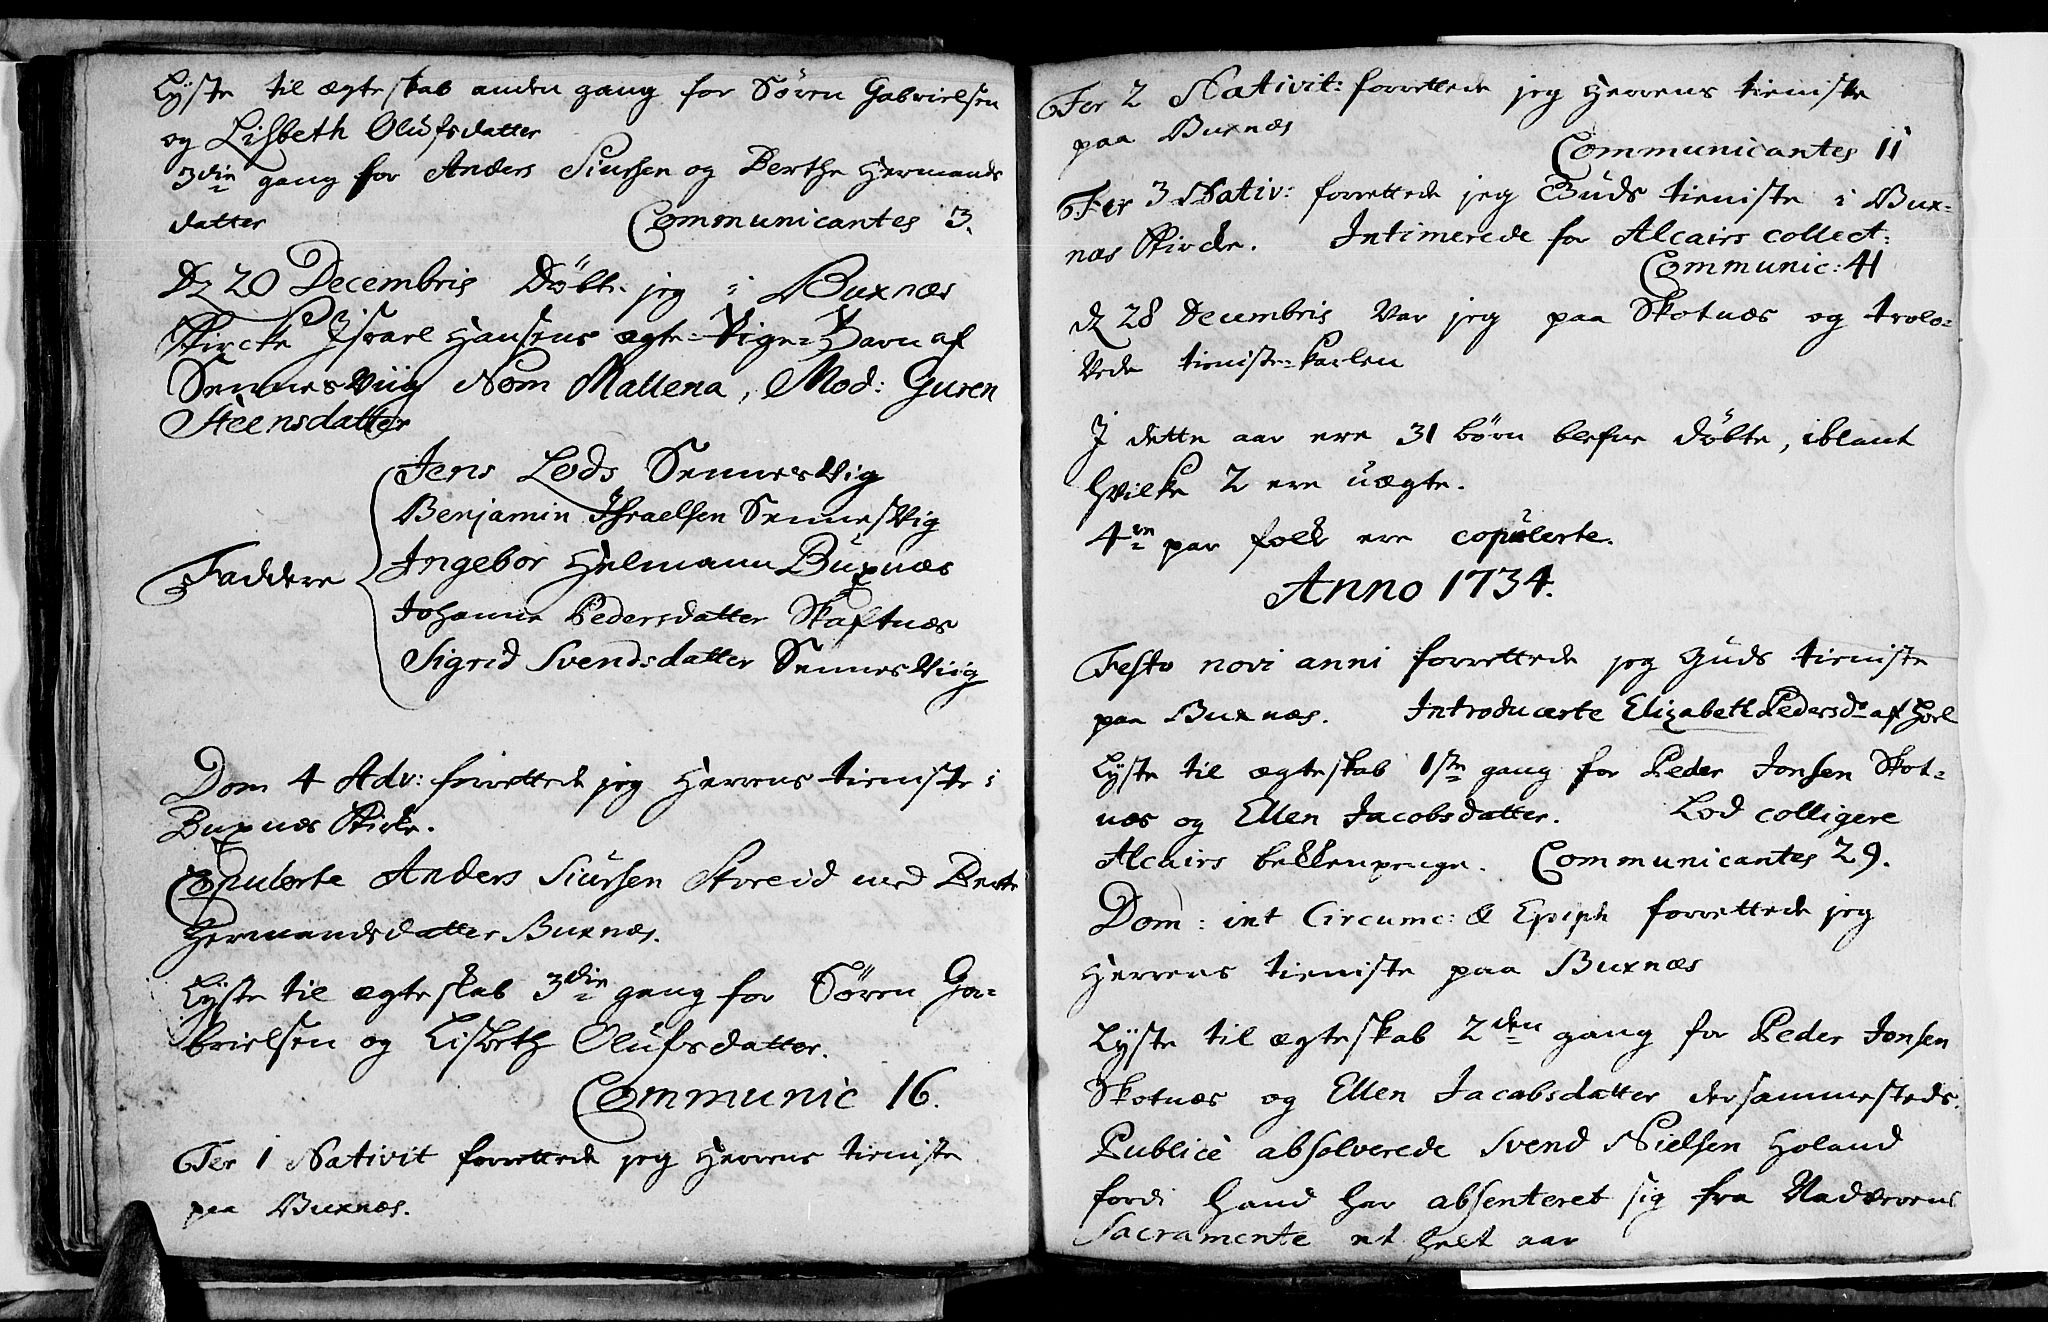 Lyste til ægteskab anden gang for Sören Gabrielsen
og Lisbeth Olufsdatter
3die gang for Anders Siursen og Berthe Hermands
datter Communicantes 3.
D 20 Decembris Döbte jeg i Buxnæs
Kircke Israel Hansens ægte Pige-Barn af
Sennesviig Nom Mallena, Mod: Guren
Steensdatter
Jens Lods Sennesvig
Benjamin Ihraelsen Sennesvig
Faddere Ingebor Helmann Buxnæs
Johanne Pedersdatter Skaftnæs
Sigrid Svendsdatter Sennesviig
Dom 4 Adv: forrettede jeg Herrens tieniste i
Buxnæs Kirke.
Copulerte Anders Siursen Storeid med Berte
Hermandsdatter Buxnæs.
Lyste til ægteskab 3die gang for Sören Ga-
brielsen og Lisbeth Olufsdatter.
Communic 16.
Fer 1 Nativit forrettede jeg Herrens tieniste
paa Buxnæs.
Fer 2 Nativit: forrettede jeg Herrens tieniste
paa Buxnæs
Communicantes 11
Fer 3 Nativ: forrettede jeg Guds tieniste i Bux-
næs Kircke. Intimerede for Alcairs collect:
Communic: 41
d 28 Decembris var jeg paa Skotnæs og trolo-
vede tieniste-karlen
I dette aar ere 31 börn blefne döbte, iblant
hvilke 2 ere uægte.
4re par folk ere copulerte.
Anno 1734.
Festo novi anni forrettede jeg Guds tieniste
paa Buxnæs. Introducerte Elizabeth Pedersdr af Horl
Lyste til ægteskab 1ste gang for Peder Jonsen Skot-
næs og Ellen Jacobsdatter. Lod colligere
Alcairs bekkenpenge. Communicantes 29.
Dom: int Circumc: & Epiph forrettede jeg
Herrens tieniste paa Buxnæs
Lyste til ægteskab 2den gang for Peder Jonsen
Skotnæs og Ellen Jacobsdatter dersammesteds.
Publicè absolverede Svend Nielsen Holand
fordi hand har absenteret sig fra Nadverens
Sacramente et heelt aar